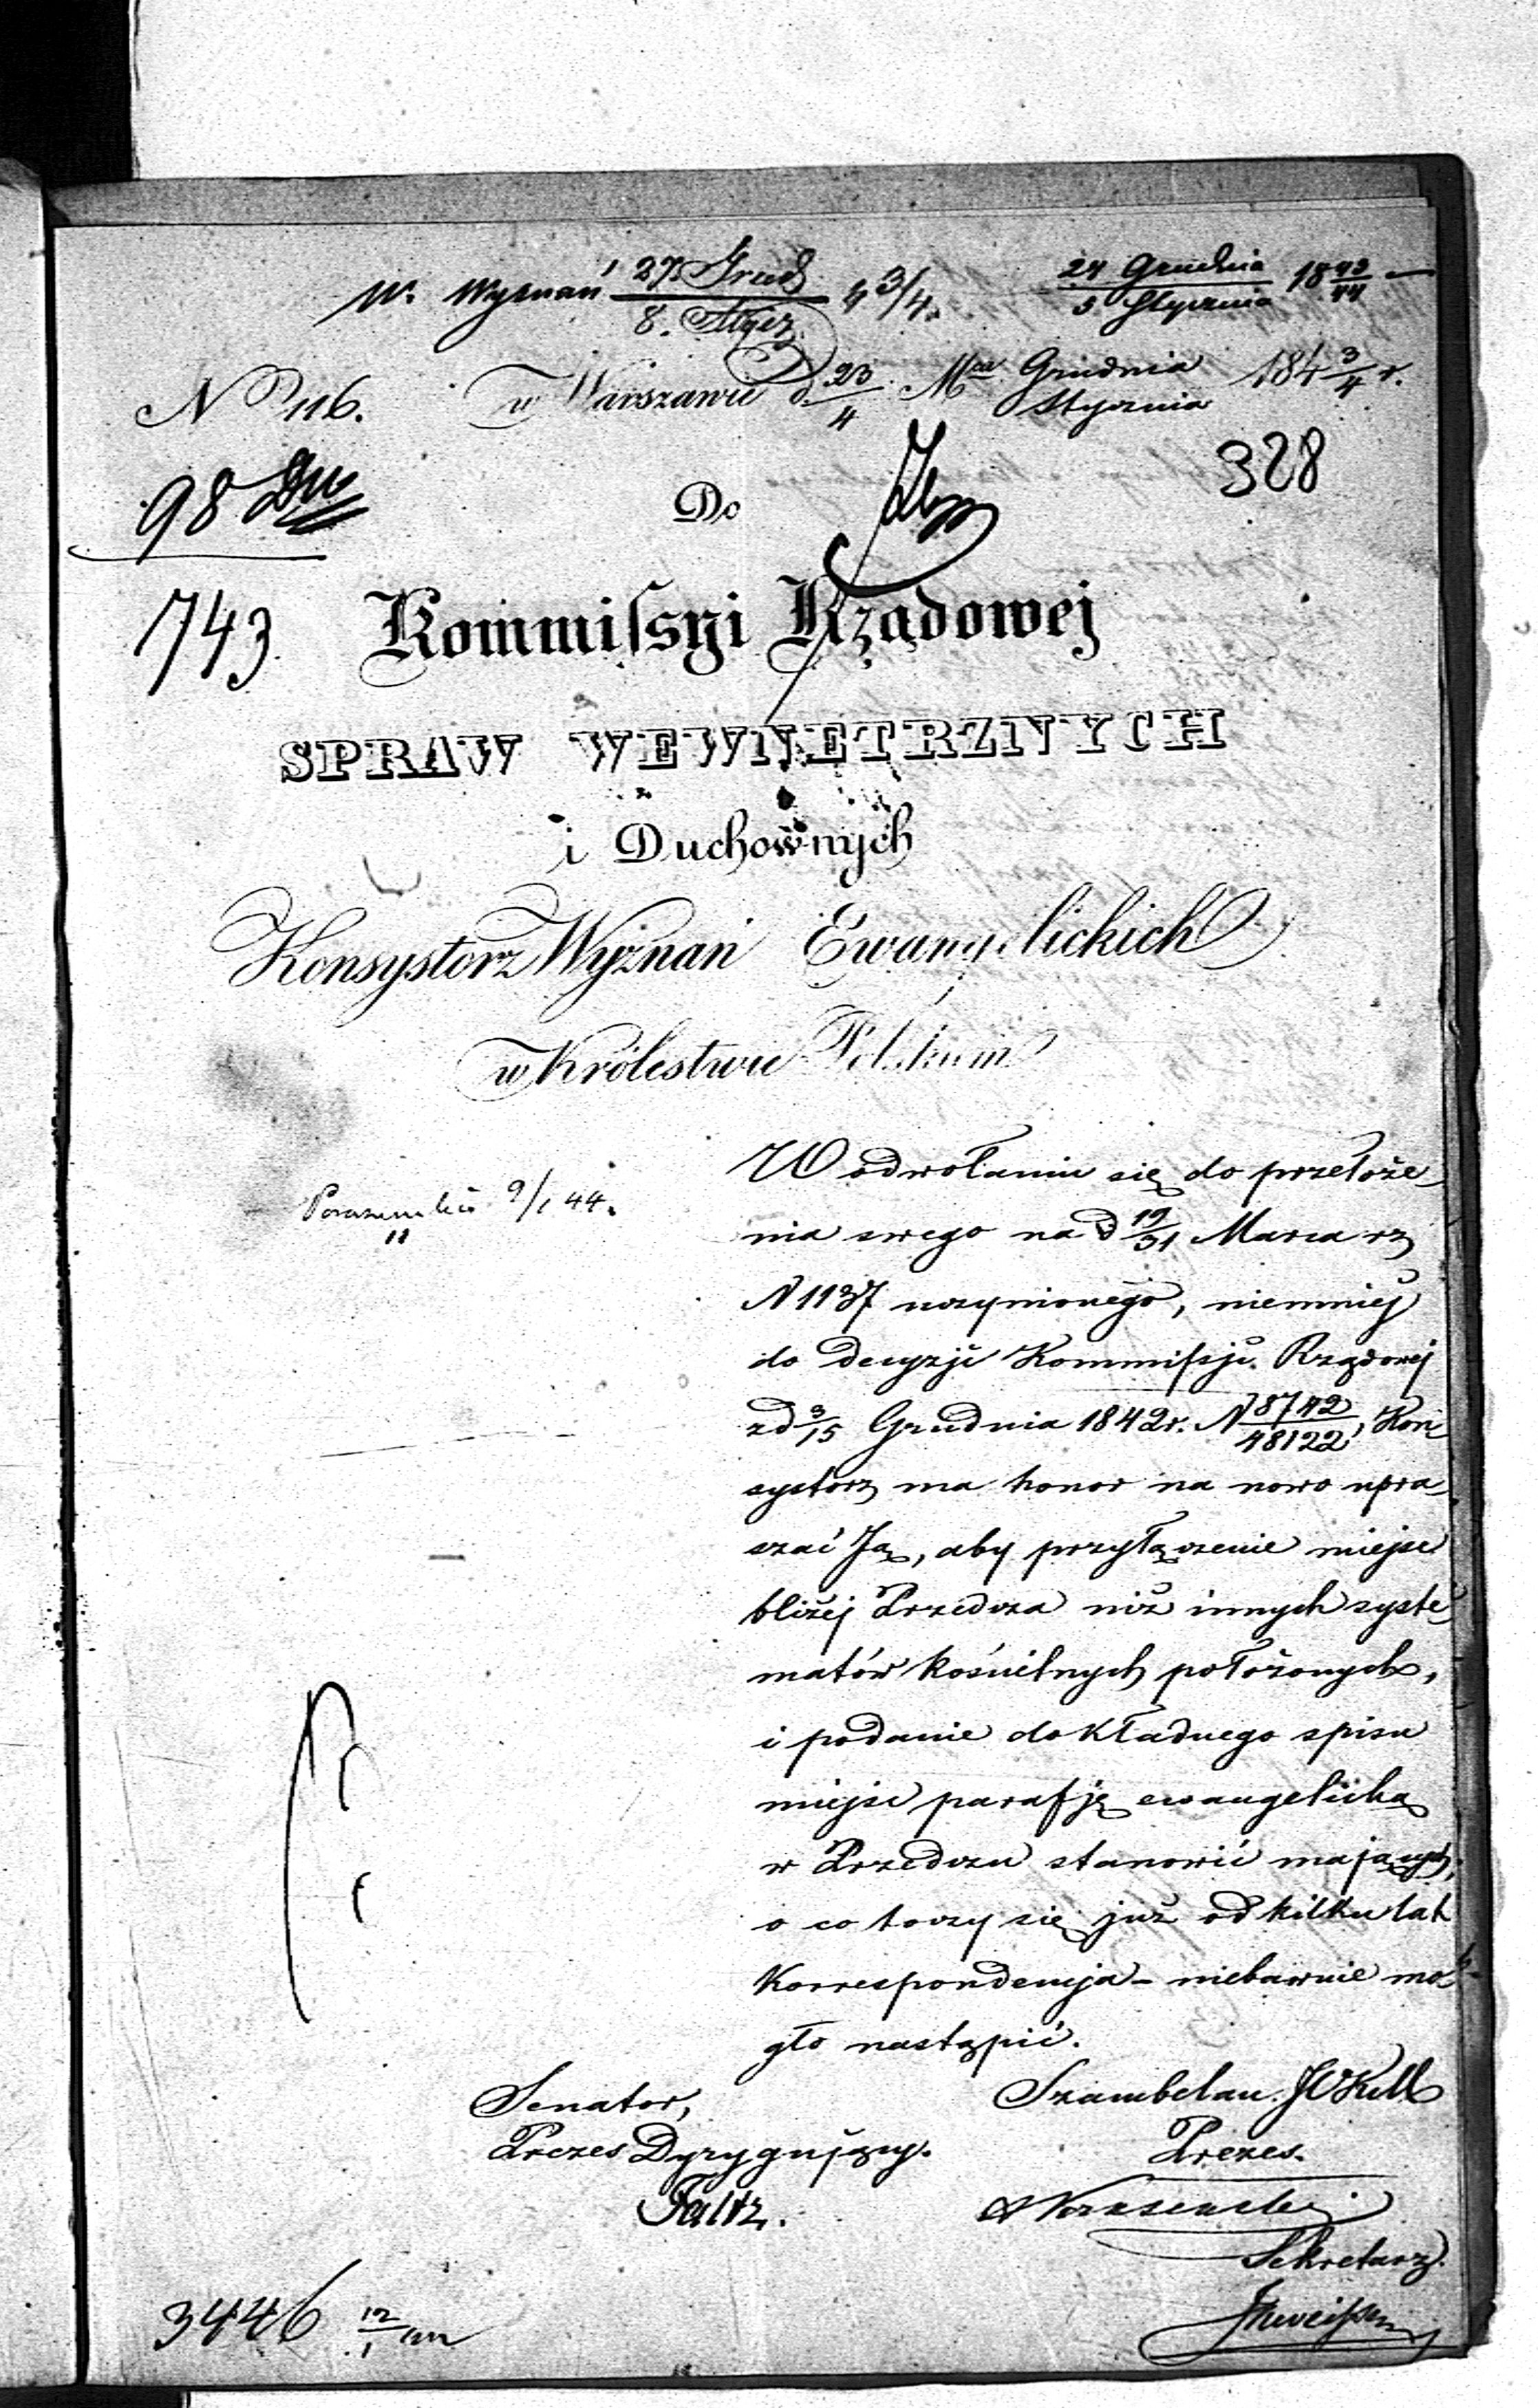 W. Wyznań 27 Grud / 8. Stycz 43/4.
24 Grudnia / 5 Stycznia 1843/44
No 116. w Warszawie d. 23/4 Mca Grudnia / Stycznia 1843/4 r.
98
328
Do
743
Kommissyi Rządowej
SPRAW WEWNĘTRZNYCH
i Duchownych
Konsystorz Wyznań Ewangelickich
w Królestwie Polskiem
9/1 44.
W odwołaniu się do przełoże
nia swego na d 19/31 Marca rz
N 1137 uczynionego, niemniej
do decyzji Kommissji Rządowej
z d 3/15 Grudnia 1842 r. N 8742/48122, Kon
systorz ma honor na nowo upra
szać Ją, aby przyłączenie miejsc
bliżej Przedcza niż innych syste
matów kościelnych położonych,
i podanie dokładnego spisu
miejsc parafję ewangelicką
w Przedczu stanowić mających,
o co toczy się już od kilku lat
Korrespondencja – niebawnie mo
gło nastąpić.
Senator, Szambelan
Prezes Dyrygujący. Prezes.
Faltz.
Sekretarz.
3446 12/1